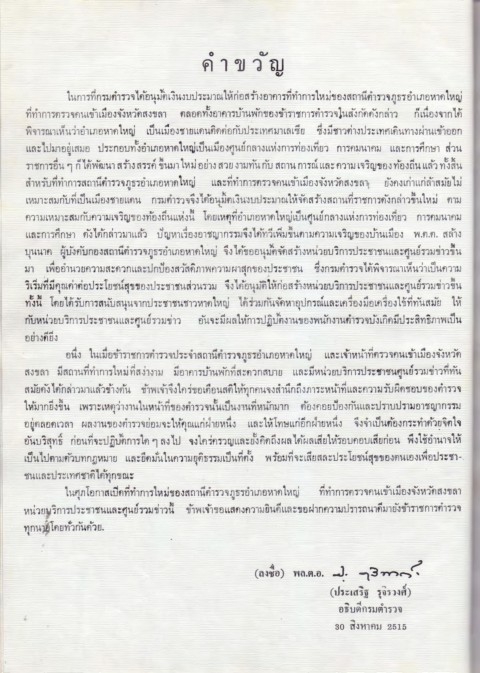 คำขวัญ
ในการที่กรมตำรวจได้อนุมัติเงินงบประมาณให้ก่อสร้างอาคารที่ทำการใหม่ของสถานีตำรวจภูธรอำเภอหาดใหญ่
ที่ทำการตรวจคนเข้าเมืองจังหวัดสงขลา ตลอดทั้งอาคารบ้านพักของข้าราชการตำรวจในสังกัดดังกล่าว ก็เนื่องจากได้
พิจารณาเห็นว่าอำเภอหาดใหญ่ เป็นเมืองชายแดนติดต่อกับประเทศมาเลเซีย ซึ่งมีชาวต่างประเทศเดินทางผ่านเข้าออก
และไปมาอยู่เสมอ ประกอบทั้งอำเภอหาดใหญ่เป็นเมืองศูนย์กลางแห่งการท่องเที่ยว การคมนาคม และการศึกษา ส่วน
ราชการอื่น ๆ ก็ได้พัฒนา สร้างสรรค์ ขึ้นมาใหม่ อย่าง สวย งาม ทันกับ สถาน การณ์ และ ความ เจริญ ของ ท้องถิ่น แล้ว ทั้งสิ้น
สำหรับที่ทำการสถานีตำรวจภูธรอำเภอหาดใหญ่ และที่ทำการตรวจคนเข้าเมืองจังหวัดสงขลา ยังคงเก่าแก่ล้าสมัยไม่
เหมาะสมกับที่เป็นเมืองชายแดน กรมตำรวจจึงได้อนุมัติเงินงบประมาณให้จัดสร้างสถานที่ราชการดังกล่าวขึ้นใหม่ ตาม
ความเหมาะสมกับความเจริญของท้องถิ่นแห่งนี้ โดยเหตุที่อำเภอหาดใหญ่เป็นศูนย์กลางแห่งการท่องเที่ยว การคมนาคม
และการศึกษา ดังได้กล่าวมาแล้ว ปัญหาเรื่องอาชญากรรมจึงได้ทวีเพิ่มขึ้นตามความเจริญของบ้านเมือง พ.ต.ต. สถาง
บุนนาค ผู้บังคับกองสถานีตำรวจภูธรอำเภอหาดใหญ่ จึงได้ขออนุมัติจัดสร้างหน่วยบริการประชาชนและศูนย์รวมข่าวขึ้น
มา เพื่ออำนวยความสะดวกและปกป้องสวัสดิภาพความผาสุกของประชาชน ซึ่งกรมตำรวจได้พิจารณาเห็นว่าเป็นความ
ริเริ่มที่มีคุณค่าต่อประโยชน์สุขของประชาชนส่วนรวม จึงได้อนุมัติให้ก่อสร้างหน่วยบริการประชาชนและศูนย์รวมข่าวขึ้น
ทั้งนี้ โดยได้รับการสนับสนุนจากประชาชนชาวหาดใหญ่ ได้ร่วมกันจัดหาอุปกรณ์และเครื่องมือเครื่องใช้ที่ทันสมัย ให้
กับหน่วยบริการประชาชนและศูนย์รวมข่าว อันจะมีผลให้การปฏิบัติงานของพนักงานตำรวจบังเกิดมีประสิทธิภาพเป็น
อย่างดียิ่ง
อนึ่ง ในเมื่อข้าราชการตำรวจประจำสถานีตำรวจภูธรอำเภอหาดใหญ่ และเจ้าหน้าที่ตรวจคนเข้าเมืองจังหวัด
สงขลา มีสถานที่ทำการใหม่ที่สง่างาม มีอาคารบ้านพักที่สะดวกสบาย และมีหน่วยบริการประชาชนศูนย์รวมข่าวที่ทัน
สมัยดังได้กล่าวมาแล้วข้างต้น ข้าพเจ้าจึงใคร่ขอเตือนสติให้ทุกคนจงสำนึกถึงภาระหน้าที่และความรับผิดชอบของตำรวจ
ให้มากยิ่งขึ้น เพราะเหตุว่างานในหน้าที่ของตำรวจนั้นเป็นงานที่หนักมาก ต้องคอยป้องกันและปราบปรามอาชญากรรม
อยู่ตลอดเวลา ผลงานของตำรวจย่อมจะให้คุณแก่ฝ่ายหนึ่ง และให้โทษแก่อีกฝ่ายหนึ่ง จึงจำเป็นต้องกระทำด้วยจิตใจ
อันบริสุทธิ์ ก่อนที่จะปฏิบัติการใด ๆ ลงไป จงใคร่ครวญและยั้งคิดถึงผลได้ผลเสียให้รอบคอบเสียก่อน พึงใช้อำนาจให้
เป็นไปตามตัวบทกฎหมาย และยึดมั่นในความยุติธรรมเป็นที่ตั้ง พร้อมที่จะเสียสละประโยชน์สุขของตนเองเพื่อประชา-
ชนและประเทศชาติได้ทุกขณะ
ในศุภโอกาสเปิดที่ทำการใหม่ของสถานีตำรวจภูธรอำเภอหาดใหญ่ ที่ทำการตรวจคนเข้าเมืองจังหวัดสงขลา
หน่วยบริการประชาชนและศูนย์รวมข่าวนี้ ข้าพเจ้าขอแสดงความยินดีและขอฝากความปรารถนาดีมายังข้าราชการตำรวจ
ทุกนายโดยทั่วกันด้วย.
(ลงชื่อ) พล.ต.อ.
(ประเสริฐ รุจิรวงศ์)
อธิบดีกรมตำรวจ
30 สิงหาคม 2515